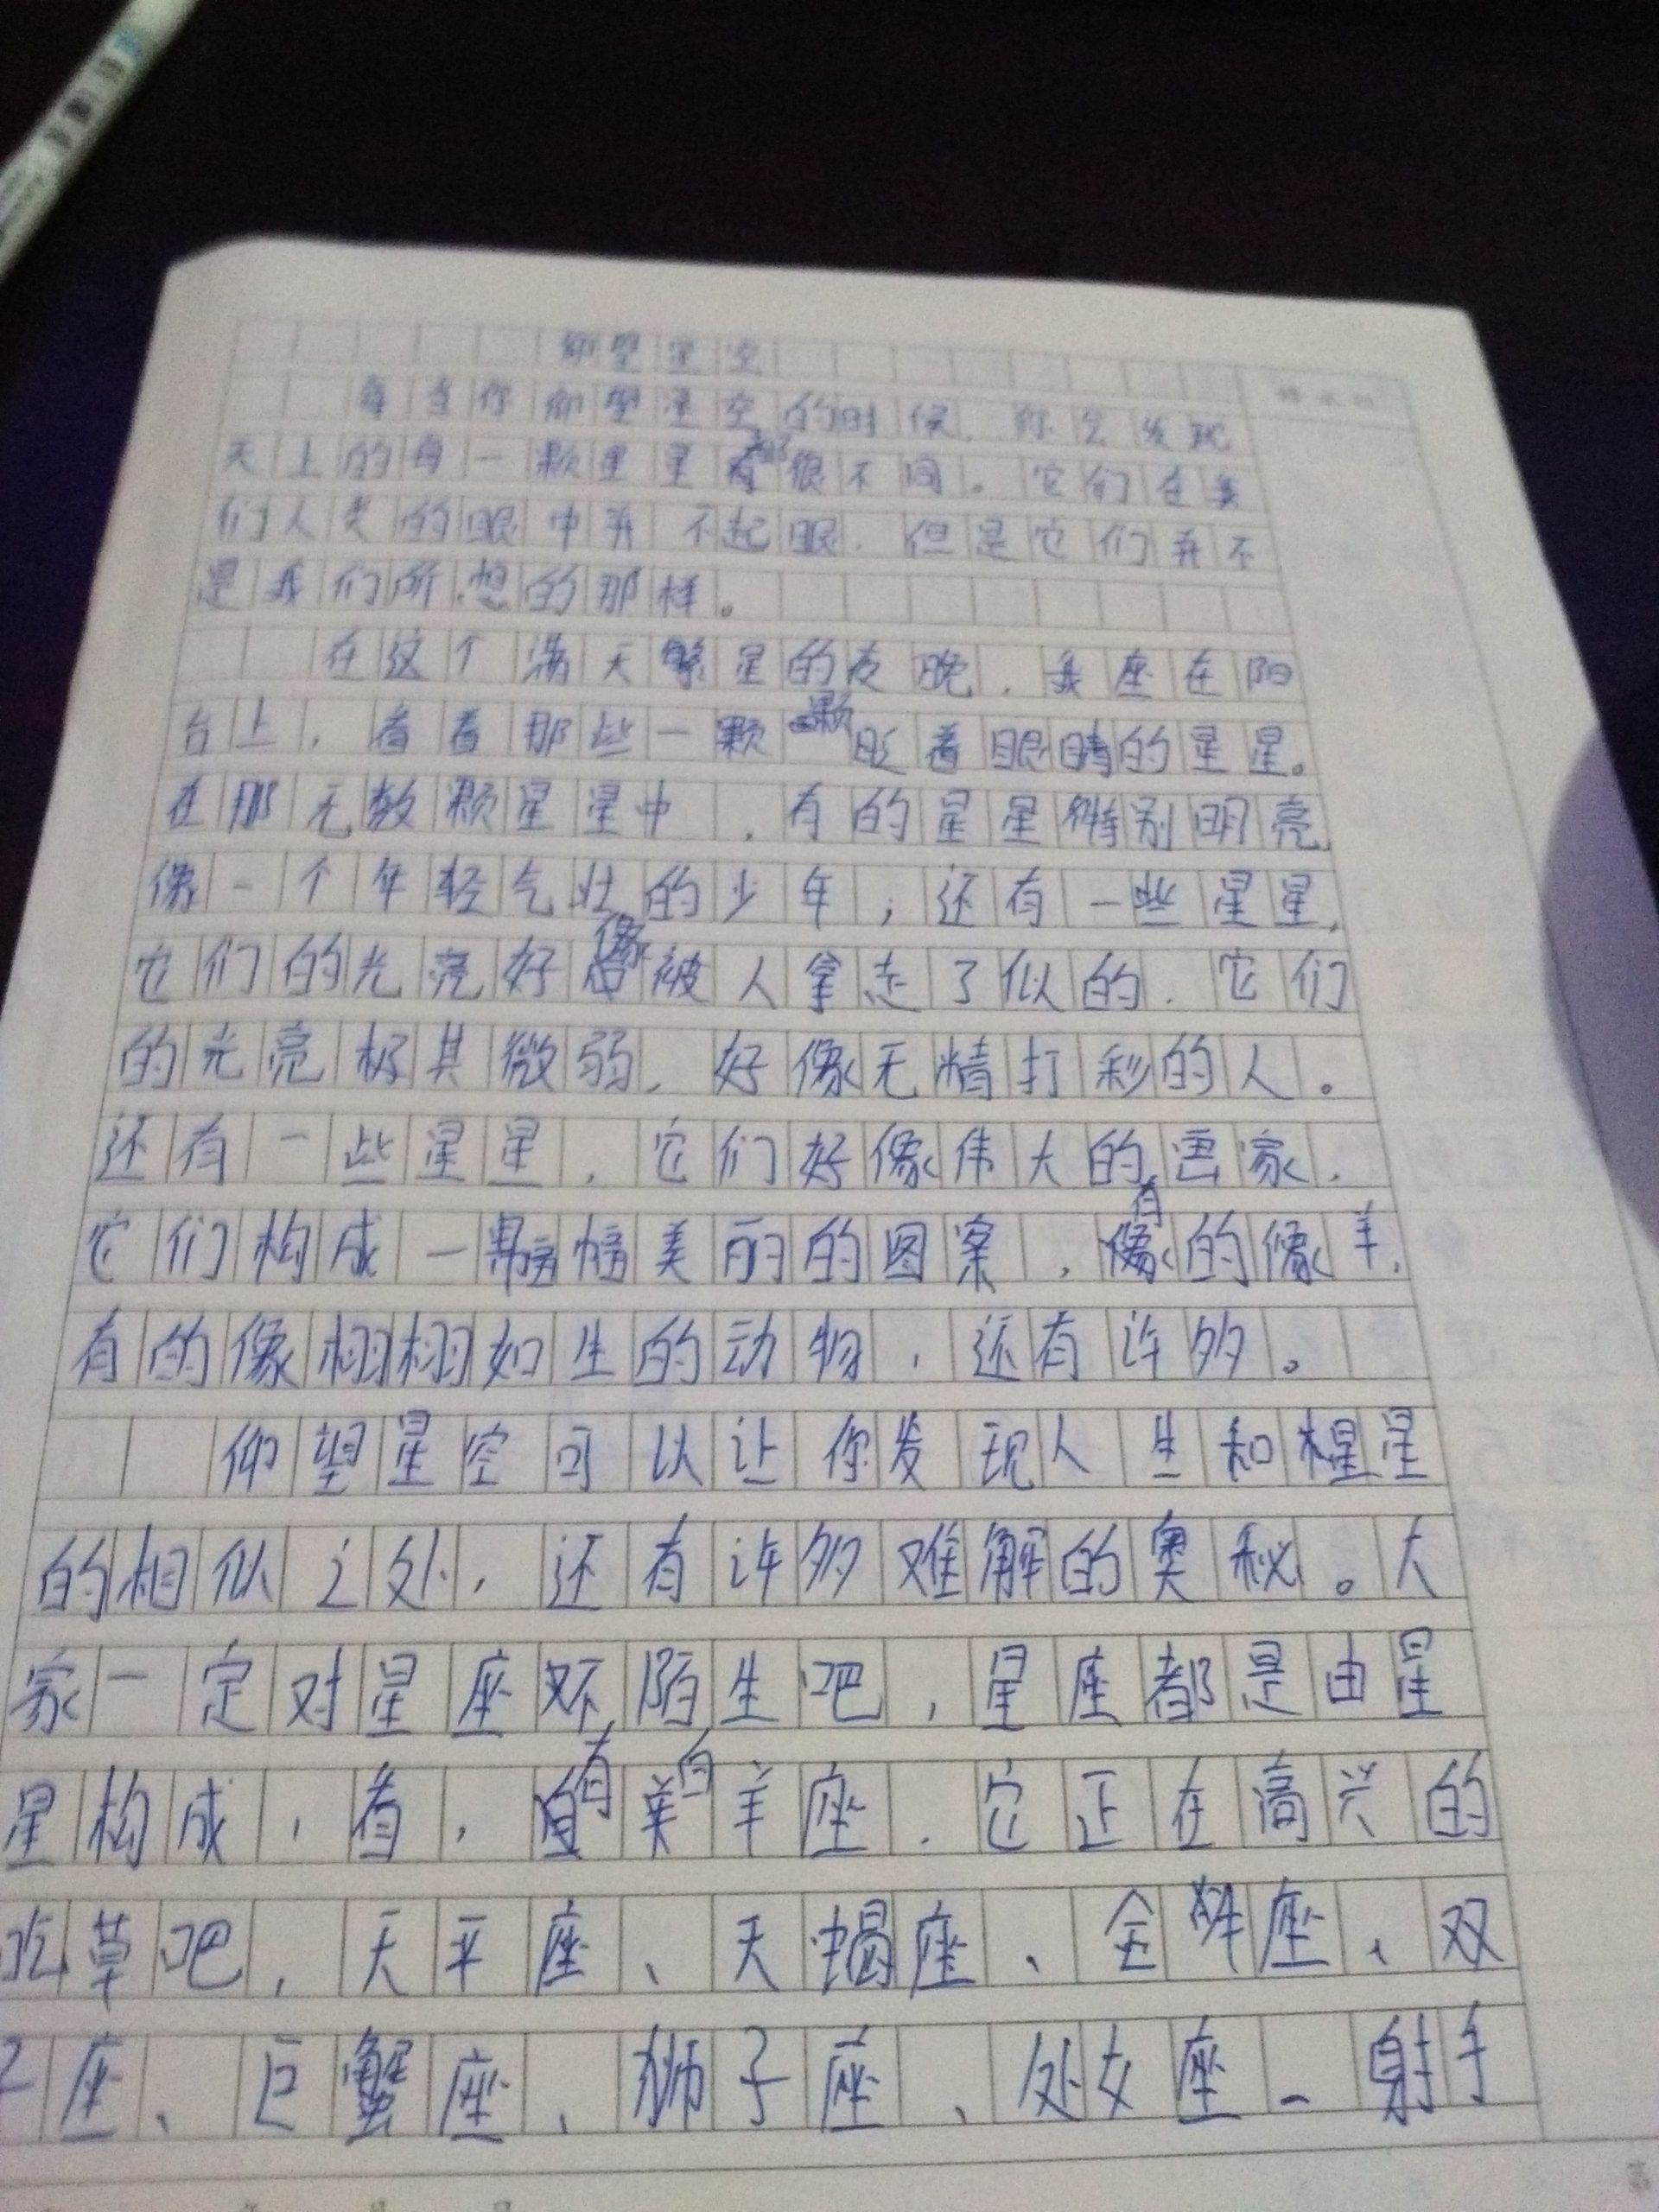 仰望星空
每当你仰望星空的时候，你会发现
天上的每一颗星星都很不同。它们在我
们人类的眼中并不起眼，但是它们并不
是我们所想的那样。
在这个满天繁星的夜晚，我座在阳
台上，看着那些一颗颗眨着眼睛的星星。
在那无数颗星星中，有的星星特别明亮
像一个年轻气壮的少年；还有一些星星，
它们的光亮好像被人拿走了似的，它们
的光亮极其微弱，好像无精打彩的人。
还有一些星星，它们好像伟大的画家，
它们构成一幅幅美丽的图案，有的像羊，
有的像栩栩如生的动物，还有许多。
仰望星空可以让你发现人生和星星
的相似之处，还有许多难解的奥秘。大
家一定对星座不陌生吧，星座都是由星
星构成，看，有白羊座，它正在高兴的
吃草吧，天平座、天蝎座、金牛座、双
子座、巨蟹座、狮子座、处女座、射手